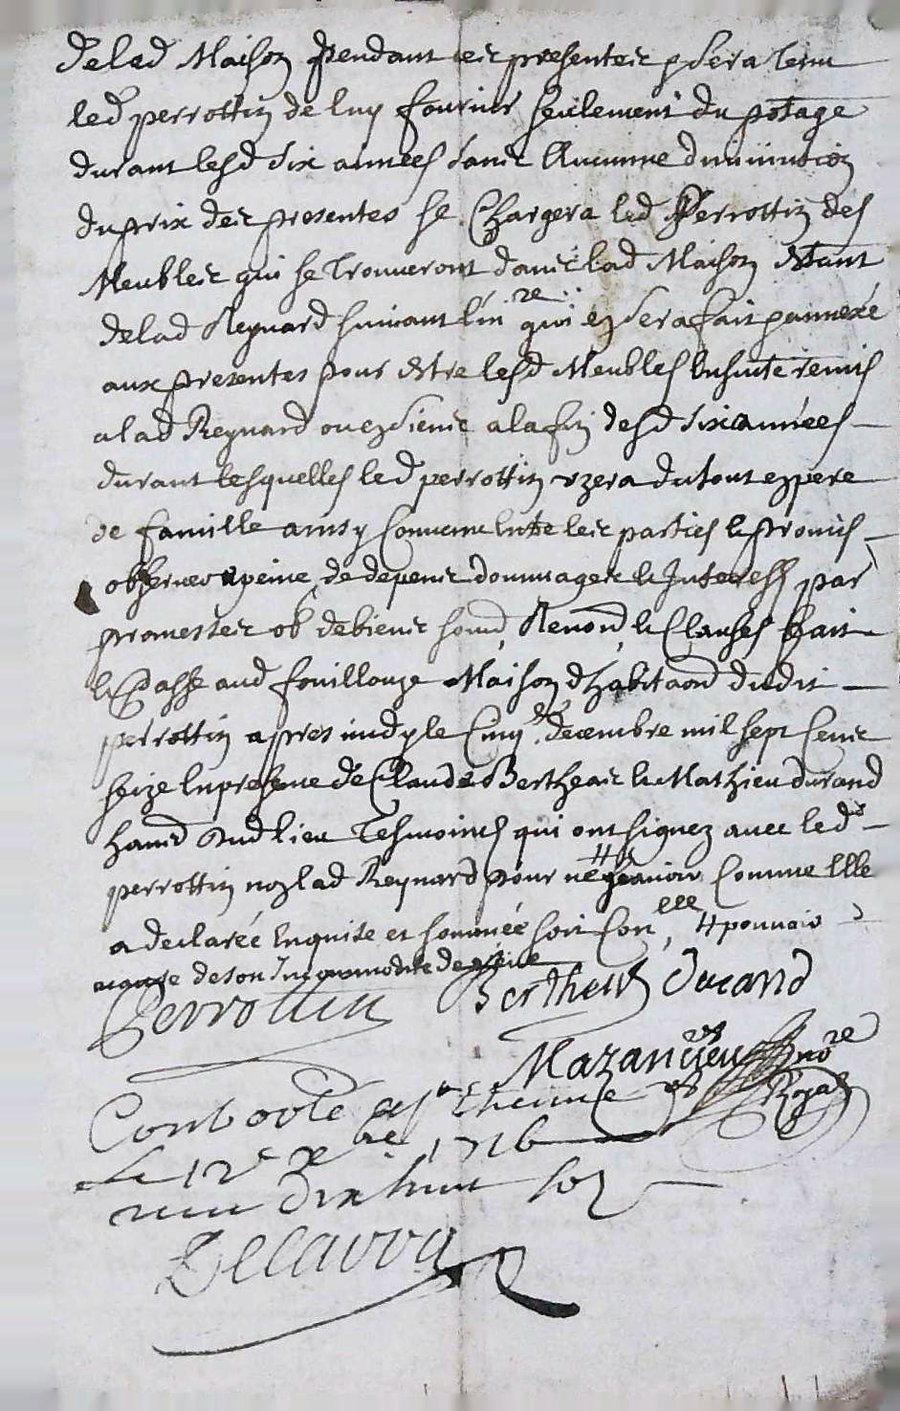 delad Maison pendant les presentes, sera tenu
led perrottin de luy fournir seulement du potage
durant lesd six années sans Aucunne diminution
du prix des presentes se Chargera led Perrottin des
Meubles qui se trouueront dans lad Maison Estant
delad Reynard suiuant lin re qui en sera fait & annexé
aux presentes pour Estre lesd Meubles Ensuite remis
a lad Reynard ou es siens a la fin desd six années
durant lesquelles led perrottin uzera du tout en pere
de famille ainsy Conuenu Entre les parties & promis
obseruer a peine de depens dommages & Interests par
promesses ob de biens soum, Renon, & Clauses fait
& passé aud fouillouze Maison d'habitaon dudit
perrottin apres midy le Cinq de decembre mil sept Cens
seize En presence de Claude Bertheas & Mathieu durand
dud lieu Tesmoins qui ont signez auec led
perrottin non lad Reynard pour ne # Comme Elle
a declarée Enquise et sommée soit Con lle, # pouuoir
a cause de son Incommodité de
Perrottin Bertheas Durand
Mazancieu no re
Royal
Controllé a st Etienne
Le 12e Xbre 1716
dix huit sols
Delarova